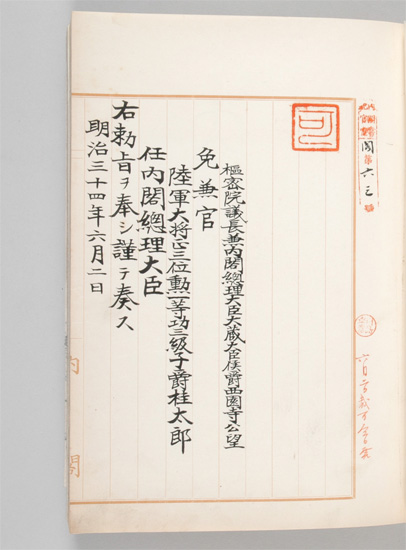 可
閣
六三
樞密院議長兼内閣總理大臣大蔵大臣侯爵西園寺公望
免兼官
陸軍大将正三位勲一等功三級子爵桂太郎
任内閣總理大臣
右勅旨ヲ奉シ謹テ奏ス
明治三十四年六月二日
内閣